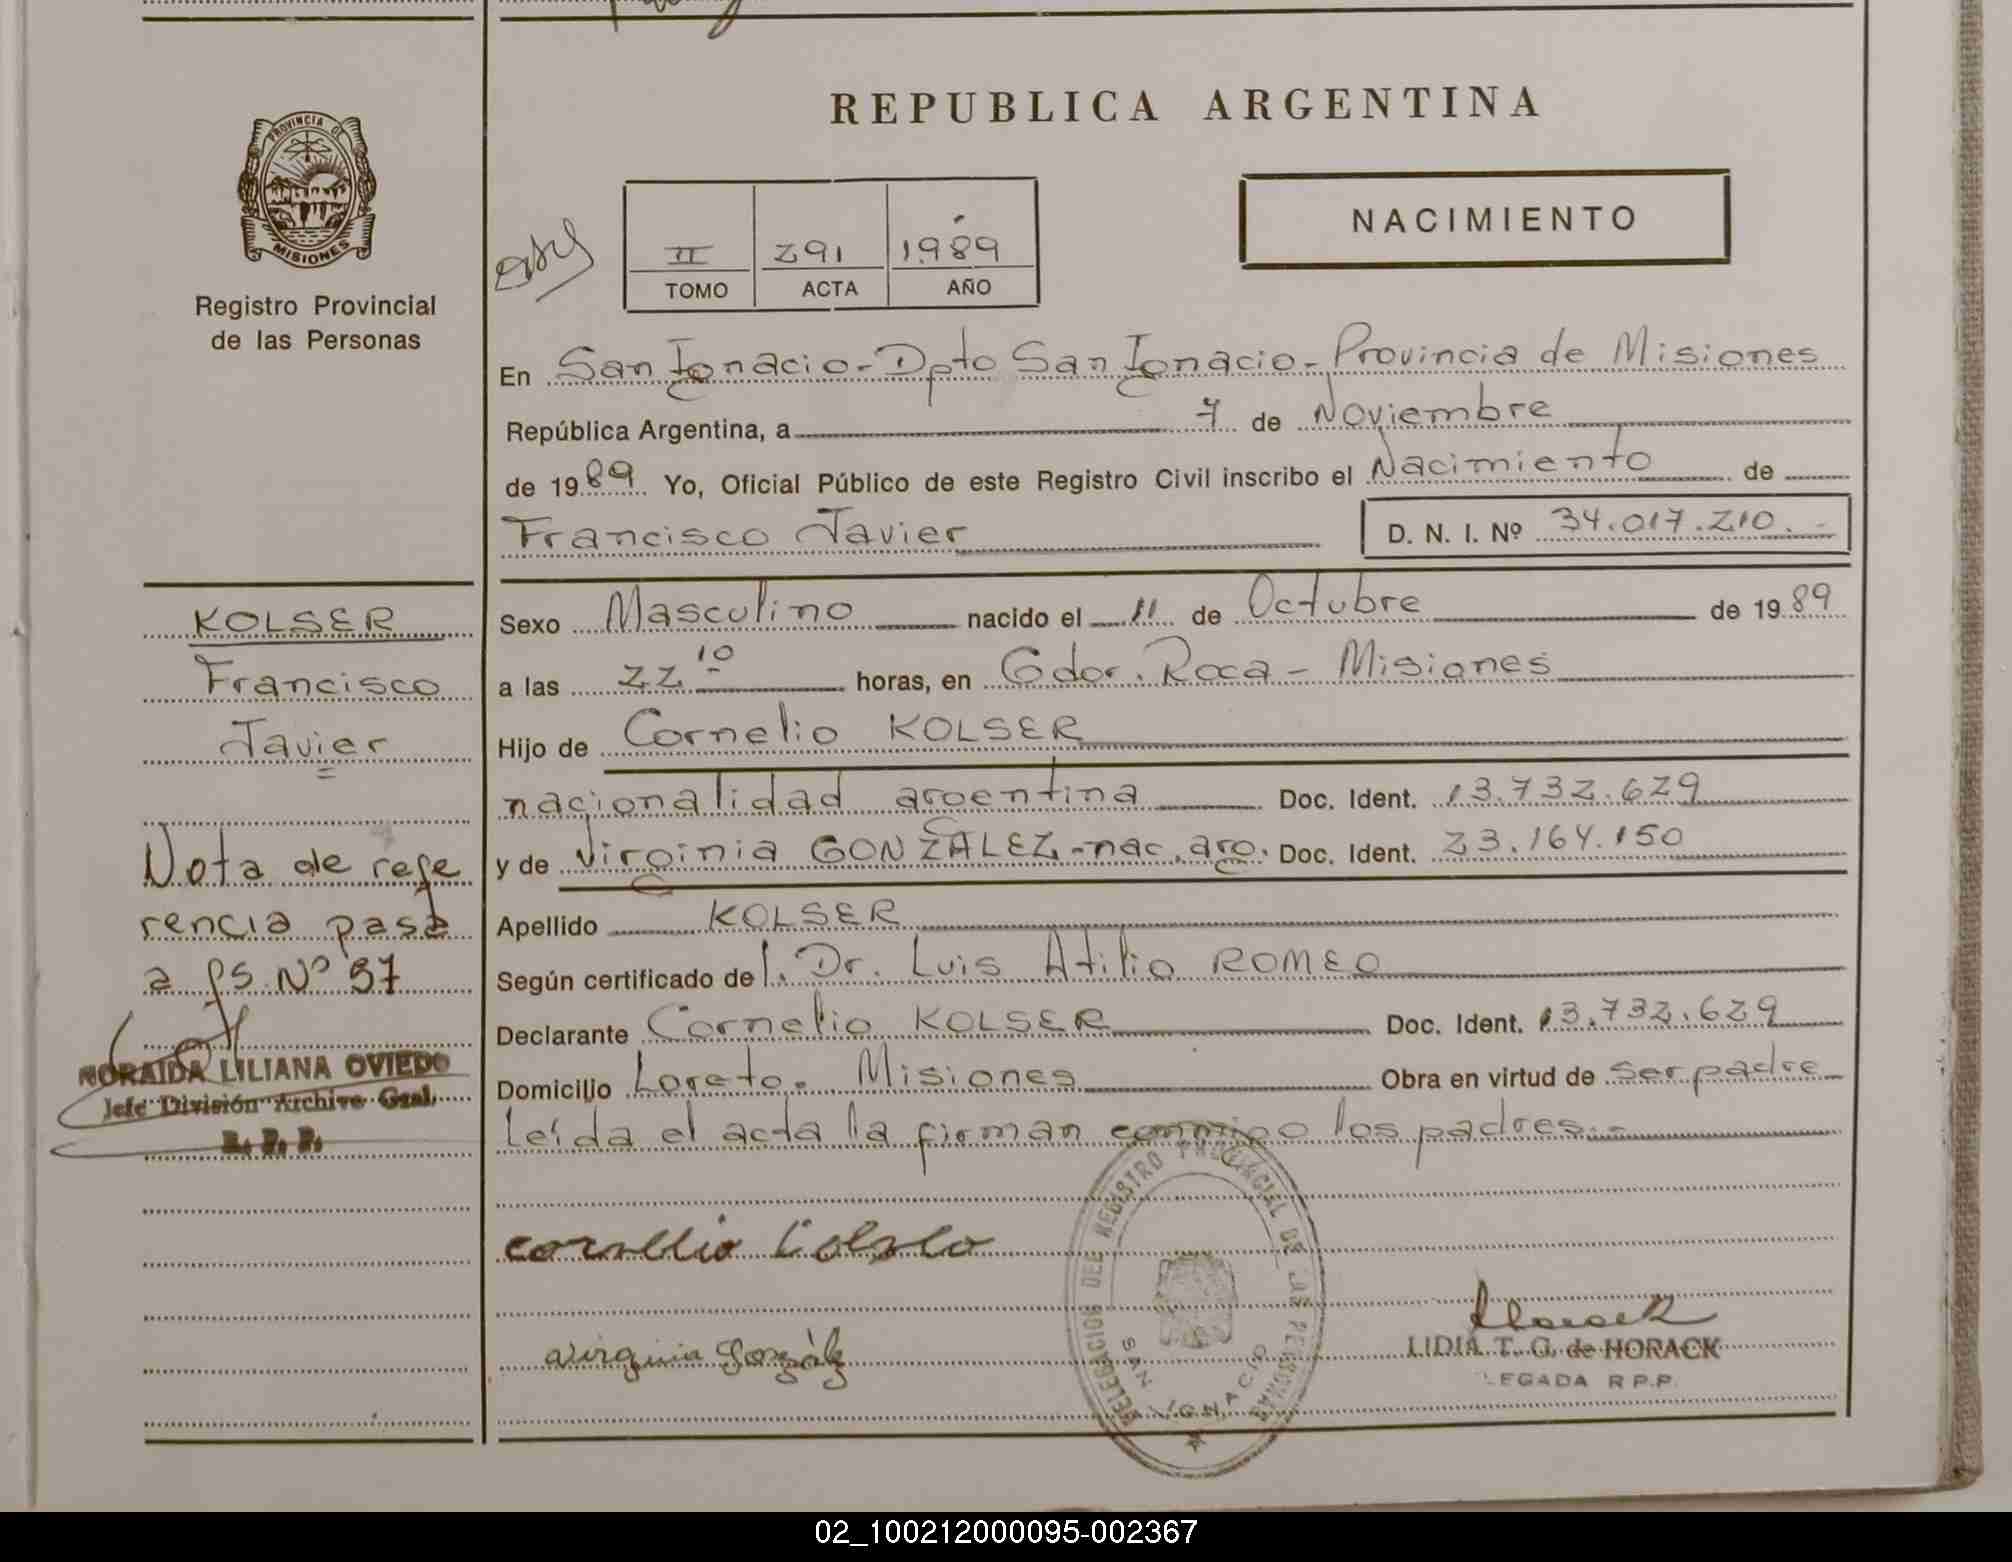 REPUBLICA ARGENTINA
PROVINCIA DE
MISIONES
Registro Provincial
de las Personas
II 291 1.989
TOMO ACTA AÑO
NACIMIENTO
En San Ignacio - Dpto San Ignacio - Provincia de Misiones
República Argentina, a 7 de Noviembre
de 1989 Yo, Oficial Público de este Registro Civil inscribo el Nacimiento de
Francisco Javier D. N. I. Nº 34.017.210.-
KOLSER
Francisco
Javier
Nota de refe
rencia pasa
a fs. Nº 97
NORAIDA LILIANA OVIEDO
Jefe División Archivo Gral.
R. P. P.
Sexo Masculino nacido el 11 de Octubre de 1989
a las 22 10 horas, en Gdor. Roca - Misiones
Hijo de Cornelio KOLSER
nacionalidad argentina Doc. Ident. 13.732.629
y de Virginia GONZÁLEZ - nac. arg. Doc. Ident. 23.164.150
Apellido KOLSER
Según certificado de l. Dr. Luis Atilio ROMEO
Declarante Cornelio KOLSER Doc. Ident. 13.732.629
Domicilio Loreto. Misiones Obra en virtud de ser padre
Leída el acta la firman conmigo los padres.-
DELEGACION DEL REGISTRO PROVINCIAL DE LAS PERSONAS
SAN IGNACIO
Virginia González
LIDIA T. G. de HORACK
LEGADA R.P.P.
02_100212000095-002367